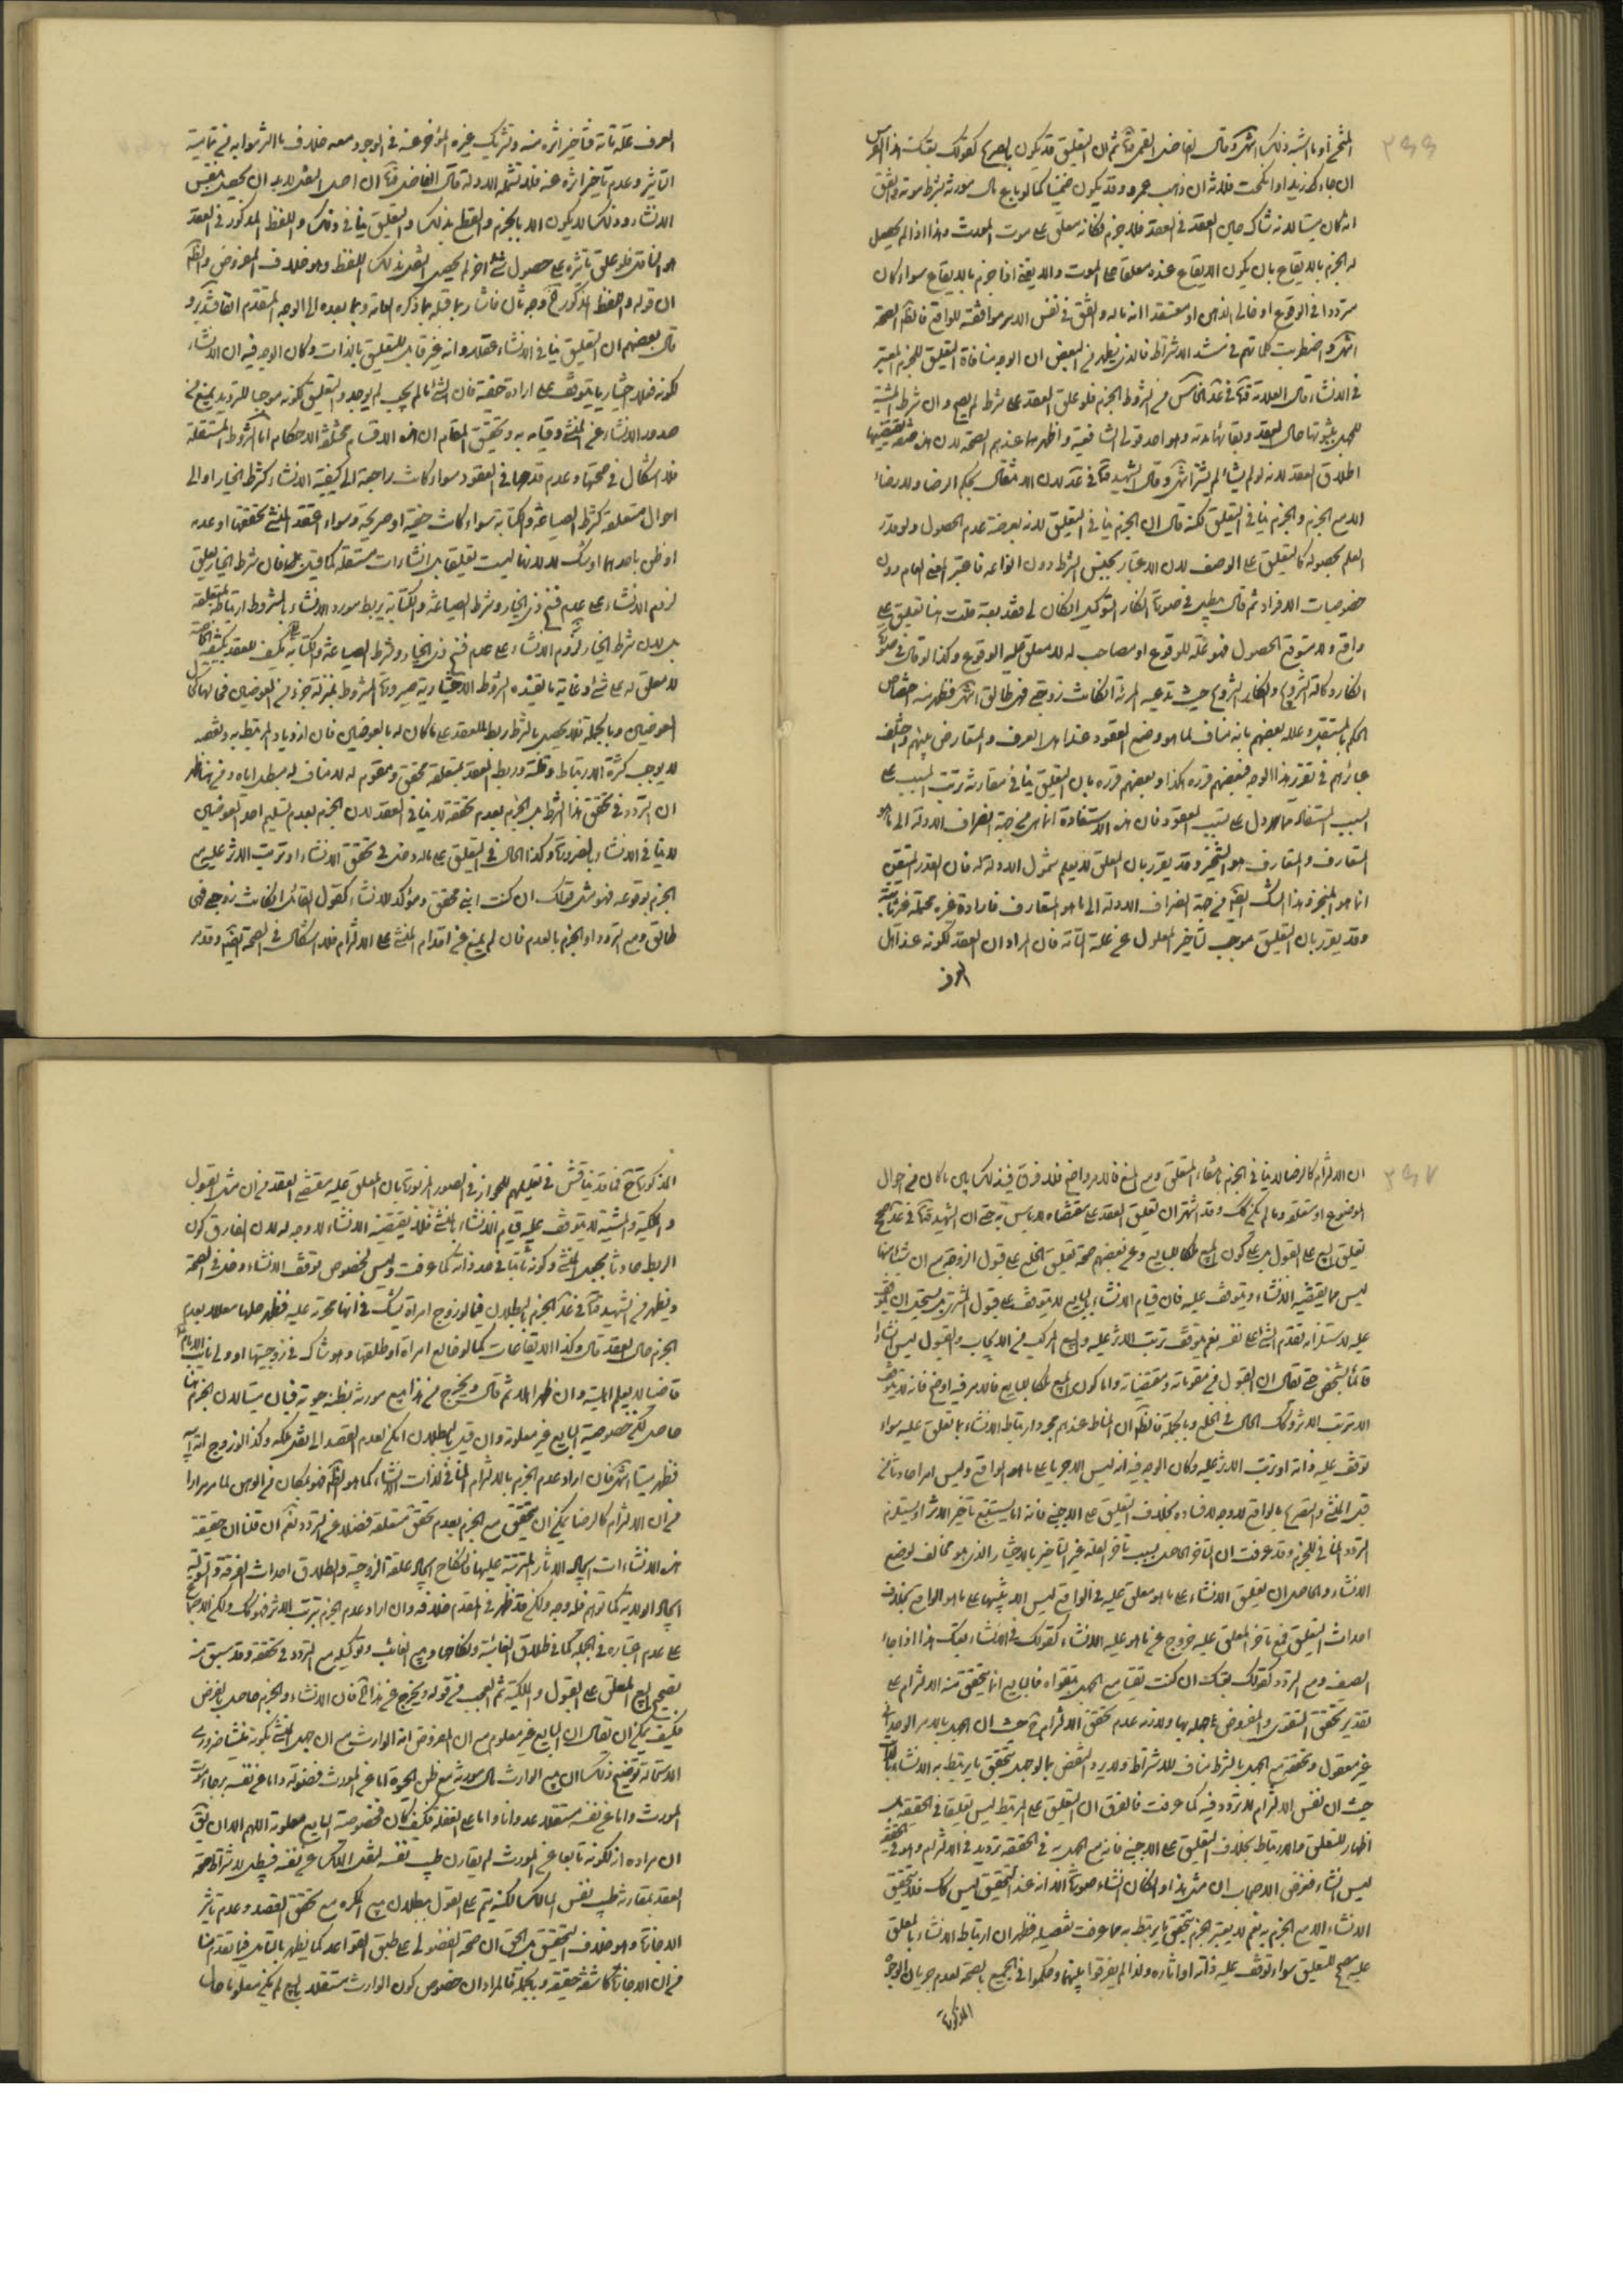 ۳۶۶
ان جاءك زيد او انكحت فلانة ان ذهب عمرو وقد يكون ضمنيا كما لو باع مال مورثه بشرط موته
انه كان ميتا لانه شاك حين العقد في العقد فلا جزم فكانه معلق على موت المورث وهذا اذا لم يحصل
له الجزم بالايقاع بان يكون الايقاع عنده معلقا على الموت والا يقع اذا جزم بالايقاع سواء كان
مترددا في الوقوع او
في الانشاء قال العلامة في عد الخامس من الشروط الجزم فلو علق العقد على شرط لم يصح وان شرط المشية
للجهل بثبوتها حال العقد وبقائها مدته وهو احد قولي الشافعية واظهرهما عندهم الصحة لان هذه صفة يقتضيها
اطلاق العقد لانه لو لم يشأ لم يشتر انتهى وقال الشهيد في عد لان الانتقال بحكم الرضا ولا رضاء
الا مع الجزم والجزم ينافي التعليق لكنه قال ان الجزم ينافي التعليق لانه بعرضة عدم الحصول ولو قدر
العلم بحصوله كالتعليق على الوصف لان الاعتبار بجنس الشرط دون انواعه فاعتبر المعنى العام دون
خصوصيات الافراد ثم قال
واقع لا متوقع الحصول فهو علة للوقوع او مصاحب له لا معلق عليه الوقوع وكذا لو قال في صورة
انكار وكالة التزويج وانكار التزويج حيث تدعيه المرئة ان كانت زوجتي فهي طالق انتهى فظهر منه اختصاص
الحكم بالمستقبل وعلله بعضهم بانه مناف لما هو وضع العقود عند اهل العرف والمتعارف بينهم واختلف
عبائرهم في تقرير هذا الوجه فبعضهم قرره هكذا وبعضهم قرره بان التعليق ينافي مقارنة ترتب المسبب على
السبب المستفاد مما دل على سببية العقود فان هذه الاستفادة انما هي من جهة انصراف الادلة الى ما هو
المتعارف والمتعارف هو المنجز وقد يقرر بان المعلق لا يعلم شمول الادلة له فان القدر المتيقن
انما هو المنجز وهذا الشك ايضا من جهة انصراف الادلة الى ما هو المتعارف فارادة غيره محتملة غير ثابتة
وقد يقرر بان التعليق موجب لتاخير المعلول عن علته التامة فان المراد ان العقد لكونه عند اهل
العرف
العرف علة تامة فتاخير اثره منه وتشريك غيره المؤخر عنه في الوجود معه خلاف ما التزموا به من تمامية
التاثير وعدم تاخير اثره عنه فلا تشمله الادلة قال الفاضل ان اصل النقل لا بد ان يحصل بنفس
الانشاء وذلك لا يكون الا بالجزم والقطع بذلك والتعليق ينافي ذلك واللفظ المذكور في العقد
هو الناقل فلو علق تاثيره على حصول شئ اخر لم يحصل النقل بذلك اللفظ وهو خلاف المفروض
قال بعضهم ان التعليق ينافي الانشاء عقلا وانه غير قابل للتعليق بالذات وكان الوجه فيه ان الانشاء
لكونه فعلا اختياريا يتوقف على ارادة حقيقة فان الشئ ما لم يجب لم يوجد والتعليق لكونه موجبا للترديد يمنع من
صدور الانشاء عن المنشئ وقيامه به وتحقيق المقام ان هذه الاقسام مختلفة الاحكام اما الشروط المستقلة
فلا اشكال في صحتها وعدم قدحها في العقود سواء كانت راجعة الى كيفية الانشاء كشرط الخيار او الى
احوال متعلقه كشرط الصياغة والكتابة سواء كانت خفية او صريحة وسواء اعتقد المنشئ تحققها او عدمه
او ظن باحدهما او شك لا لانها ليست تعليقا بل انشاءات مستقلة كما قيل
لزوم الانشاء على عدم فسخ ذي الخيار وشرط الصياغة والكتابة يربط مورد الانشاء بالمشروط ارتباط المتعلقة
المعوضين وبالجملة فلا يحصل بالشرط ربط للعقد على ما كان له بالعوضين فان ازدياد المرتبط به ونقصه
لا يوجب كثرة الارتباط وقلته وربط العقد بمتعلقه محقق ومقوم له لا مناف له مبطل اياه ومن هنا ظهر
ان التردد في تحقق هذا الشرط بل الجزم بعدم تحققه لا ينافي العقد لان الجزم بعدم تسليم احد العوضين
لا ينافي الانشاء بالضرورة وكذا الحال في التعليق على ماله دخل في تحقق الانشاء او ترتب الاثر عليه مع
الجزم بوقوعه فهو مثل قولك ان كنت ابني محقق ومؤكد للانشاء كقول القائل ان كانت زوجتي فهي
طالق ومع التردد او الجزم بالعدم فان لم يمنع من اقدام المنشئ على الالتزام فلا اشكال في الصحة ايضا وقد مر
۳۶۷
ان الالتزام كالرضا لا ينافي الجزم بانتفاء المتعلق ومع المنع فالامر واضح فلا فرق في ذلك بين ما كان من احوال
الموضوع او متعلقه وما لم يكن كك وقد اشتهر ان تعليق العقد على مقتضاه لا باس به حتى ان الشهيد في عد صحح
تعليق البيع على القبول بل على كون المبيع ملكا للبايع وعن بعضهم صحة تعليق الخلع على قبول الزوجة مع ان شيئا منها
ليس مما يقتضيه الانشاء ويتوقف عليه فان قيام الانشاء بالبايع لا يتوقف على قبول المشتري بل يستحيل ان يتوقف
عليه لاستلزامه تقدم الشئ على نفسه نعم يتوقف ترتب الاثر عليه والبيع المركب من الايجاب والقبول ليس انشاءا
قائما بشخص حتى يقال ان القبول من مقوماته ومقتضياته واما كون المبيع ملكا للبايع فالامر فيه اوضح فانه لا يتوقف
الا ترتب الاثر وكك الحال في الخلع وبالجملة فالظاهر ان المناط عندهم مجرد ارتباط الانشاء بما تعلق عليه سواء
توقف عليه ذاته او ترتب الاثر عليه وكان الوجه فيه انه ليس الا جريا على ما هو الواقع وليس امرا حادثا من
قبل المنشئ والتصريح بالواقع لا وجه لافساده بخلاف التعليق على الاجنبي فانه انما يستتبع تاخير الاثر او يستلزم
التردد المنافي للجزم وقد عرفت ان التاخر الحاصل بسبب تاخر العلة غير التاخير بالاختيار الذي هو مخالف لوضع
الانشاء والحاصل ان تعليق الانشاء على ما هو معلق عليه في الواقع ليس الا تثبيتها على ما هو الواقع بخلاف
احداث التعليق فمع تاخر المعلق عليه خروج عن ما هو عليه الانشاء كقولك في الانشاء بعتك هذا اذا جاء
الصيف ومع التردد كقولك بعتك ان كنت تقيا مع الجهل بتقواه فالبايع انما يتحقق منه الالتزام على
تقدير تحقق التقوى والمفروض جهله بها ولازمه عدم تحقق الالتزام ح حيث ان الجهل بالامر الوجداني
غير معقول وتحققه مع الجهل بالشرط مناف للاشتراط ولا يرد النقض بما لو جهل بتحقق ما يرتبط به الانشاء
حيث ان نفس الالتزام لا تردد فيه كما عرفت فالفرق ان التعليق على المرتبط ليس تعليقا في الحقيقة بل
اظهار للتعلق والارتباط بخلاف التعليق على الاجنبي فانه مع الجهل به في الحقيقة ترديد في الالتزام وهو في الحقيقة
ليس انشاء فغرض الاصحاب ان مثل هذا وان كان انشاء صورة الا انه عند التحقيق ليس كك فلا يتحقق
الانشاء الا مع الجزم به نعم لا يعتبر الجزم بتحقق ما يرتبط به مما عرفت تفصيله فظهر ان ارتباط الانشاء بالمعلق
عليه مصحح للتعليق سواء توقف عليه ذاته او اثاره ولذا لم يفرقوا بينهما وحكموا في الجميع بالصحة لعدم جريان الوجوه
المذكورة
المذكورة ح فما قد يناقش في تعليلهم للجواز في الصور المزبورة بان المعلق عليه مقتضى العقد من ان مثل القبول
والملكية والمشية لا يتوقف عليه قيام الانشاء بالمنشئ فلا يقتضيه الانشاء لا وجه له لان الفارق كون
الربط حادثا بجعل المنشئ وكونه ثابتا في حد ذاته كما عرفت وليس لخصوص توقف الانشاء دخل في الصحة
ويظهر من الشهيد في عد الجزم بالبطلان فيما لو زوج امراة يشك في انها محرمة عليه فظهر حلها معللا بعدم
الجزم حال العقد قال وكذا الايقاعات كما لو خالع امراة او طلقها وهو شاك في زوجيتها او ولى نايب الامام
قاضيا لا يعلم اهليته وان ظهر اهلا ثم قال ويخرج من هذا بيع مال مورثه بظنه حيوته فبان ميتا لان الجزم هنا
حاصل لكن خصوصية البايع غير معلومة وان قيل بالبطلان امكن لعدم القصد الى نقل ملكه وكذا لو زوج امة ابيه
فظهر ميتا انتهى فان اراد عدم الجزم بالالتزام المنافي لذات الانشاء كما هو الظاهر فهو بمكان من الوهن لما مر مرارا
من ان الالتزام كالرضا يمكن ان يتحقق مع الجزم بعدم تحقق متعلقه فضلا عن التردد نعم ان قلنا ان حقيقة
هذه الانشاءات ايجاد الاثار المترتبة عليها فالنكاح ايجاد علقة الزوجية والطلاق احداث الفرقة والتولية
ايجاد الولاية كما توهم فله وجه ولكن قد ظهر في ما تقدم خلافه وان اراد عدم الجزم بترتب الاثر فهو كك ولكن الاجماع
على عدم اعتباره في الجملة كما في طلاق الغائبة ونكاحها وبيع الغائب وتوكيله مع التردد في تحققه وقد سبق منه
تصحيح البيع المعلق على القبول والملكية ثم العجب من قوله ويخرج عن هذا الخ فان الانشاء والجزم حاصل بالفرض
فكيف يمكن ان يقال ان البايع غير معلوم مع ان المفروض انه الوارث مع ان جهل المنشئ بكونه منشئا ضروري
الاستحالة توضيح ذلك ان بيع الوارث مال مورثه مع ظن الحيوة اما عن المورث فضولة واما عن نفسه برجاء موت
المورث واما عن نفسه مستقلا عدوانا واما على الغفلة فكيف كان فخصوصية البايع معلومة اللهم الا ان يقال
ان مراده انه لكونه تابعا عن المورث لم يقارن طيب نفسه لنقل الملك عن نفسه فيبطل لاشتراط صحة
العقد بمقارنة طيب نفس المالك لكنه يتم على القول ببطلان بيع المكره مع تحقق القصد وعدم تاثير
الاجازة وهو خلاف التحقيق بل الحق ان صحة الفضولي على طبق القواعد كما يظهر بالتامل فيما تقدم منا
من ان الاجازة كاشفة حقيقة وبالجملة فالمراد ان خصوص كون الوارث مستقلا بالبيع لم يكن معلوما حال